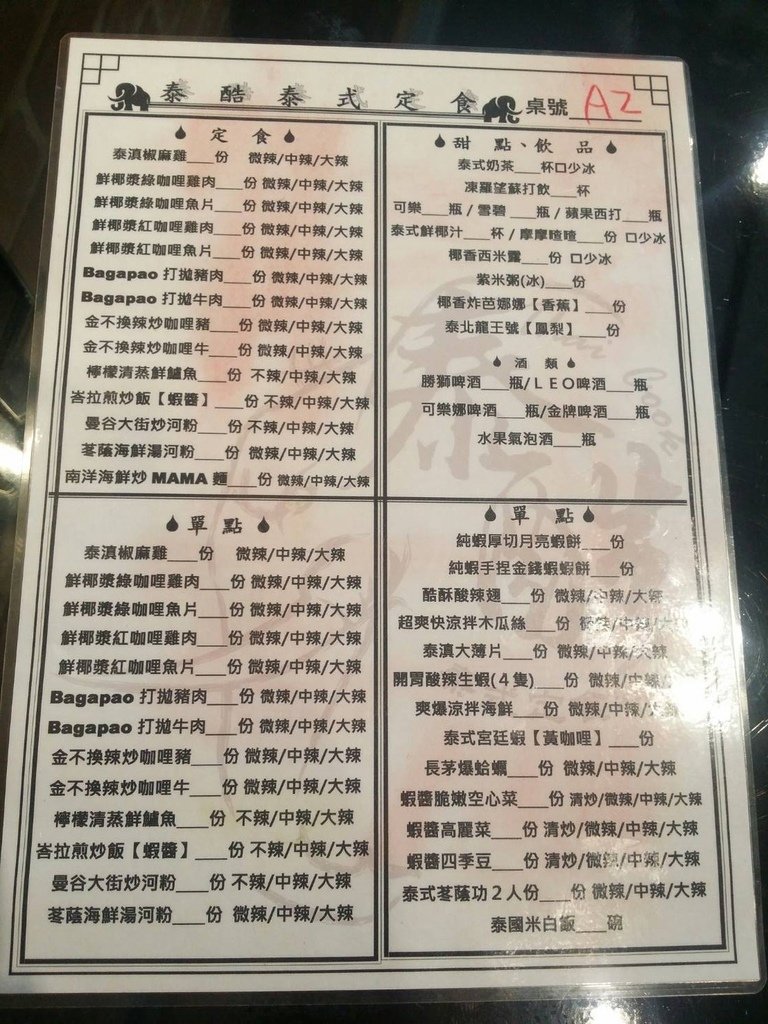 泰酷泰式定食 桌號 A2
定食
泰滇椒麻雞___份 微辣/中辣/大辣
鮮椰漿綠咖哩雞肉___份 微辣/中辣/大辣
鮮椰漿綠咖哩魚片___份 微辣/中辣/大辣
鮮椰漿紅咖哩雞肉___份 微辣/中辣/大辣
鮮椰漿紅咖哩魚片___份 微辣/中辣/大辣
Bagapao 打拋豬肉___份 微辣/中辣/大辣
Bagapao 打拋牛肉___份 微辣/中辣/大辣
金不換辣炒咖哩豬___份 微辣/中辣/大辣
金不換辣炒咖哩牛___份 微辣/中辣/大辣
檸檬清蒸鮮鱸魚___份 不辣/中辣/大辣
峇拉煎炒飯【蝦醬】___份 不辣/中辣/大辣
曼谷大街炒河粉___份 不辣/中辣/大辣
苳蔭海鮮湯河粉___份 微辣/中辣/大辣
南洋海鮮炒 MAMA 麵___份 微辣/中辣/大辣
甜點、飲品
泰式奶茶___杯口少冰
凍羅望蘇打飲___杯
可樂___瓶/雪碧___瓶/蘋果西打___瓶
泰式鮮椰汁___杯/摩摩喳喳___份 口少冰
椰香西米露___份 口少冰
紫米粥(冰)___份
椰香炸芭娜娜【香蕉】___份
泰北龍王號【鳳梨】___份
酒類
勝獅啤酒___瓶/LEO啤酒___瓶
可樂娜啤酒___瓶/金牌啤酒___瓶
水果氣泡酒___瓶
單點
泰滇椒麻雞___份 微辣/中辣/大辣
鮮椰漿綠咖哩雞肉___份 微辣/中辣/大辣
鮮椰漿綠咖哩魚片___份 微辣/中辣/大辣
鮮椰漿紅咖哩雞肉___份 微辣/中辣/大辣
鮮椰漿紅咖哩魚片___份 微辣/中辣/大辣
Bagapao 打拋豬肉___份 微辣/中辣/大辣
Bagapao 打拋牛肉___份 微辣/中辣/大辣
金不換辣炒咖哩豬___份 微辣/中辣/大辣
金不換辣炒咖哩牛___份 微辣/中辣/大辣
檸檬清蒸鮮鱸魚___份 不辣/中辣/大辣
峇拉煎炒飯【蝦醬】___份 不辣/中辣/大辣
曼谷大街炒河粉___份 不辣/中辣/大辣
苳蔭海鮮湯河粉___份 微辣/中辣/大辣
單點
純蝦厚切月亮蝦餅___份
純蝦手捏金錢蝦蝦餅___份
酷酥酸辣翅___份 微辣/中辣/大辣
超爽快涼拌木瓜絲___份 微辣/中辣/大
泰滇大薄片___份 微辣/中辣/大辣
開胃酸辣生蝦(4隻)___份 微辣/中辣/
爽爆涼拌海鮮___份 微辣/中辣/大辣
泰式宮廷蝦【黃咖哩】___份
長茅爆蛤蠣___份 微辣/中辣/大辣
蝦醬脆嫩空心菜___份 清炒/微辣/中辣/大辣
蝦醬高麗菜___份 清炒/微辣/中辣/大辣
蝦醬四季豆___份 清炒/微辣/中辣/大辣
泰式苳蔭功2人份___份 微辣/中辣/大辣
泰國米白飯___碗